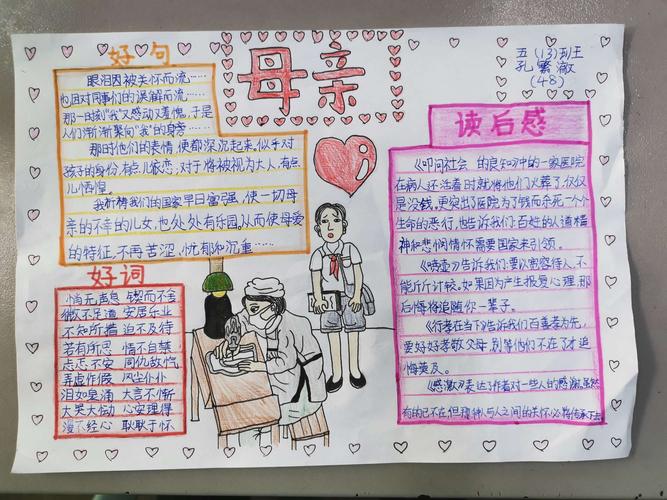 好句
眼泪因被关怀而流……
也因对同事们的误解而流……
那一日刻"我"又感动又羞愧，于是
人们渐渐聚向"我"的身旁……
那时他们的表情，便都深沉起来。似乎对
孩子的身份，有点儿家恋，对于将被视为大人，有点
儿惆惶。
我祈祷我们的国家早日富强，使一切母
亲的不幸的儿女，也处处有乐园。从而使母爱
的特征，不再苦涩、忧郁和沉重……
好词
悄无声息 锲而不舍
微不足道 安居乐业
不知所措 迫不及待
若有所思 情不自禁
忐忑不安 同仇敌忾
弄虚作假 风尘仆仆
泪如泉涌 大言不惭
大哭大恸 心安理得
漫不经心 耿耿于怀
母亲
五(13)班
孔繁澈
(48)
读后感
《叩问社会的良知》中的一家医院
在病人还活着时就将他们火葬了，仅仅
是没钱。更突出了医院为了钱而杀死一个个
生命的恶行，也告诉我们：百姓的人道精
神和悲悯情怀需要国家来引领。
告诉我们：要以宽容待人，不
能斤斤计较。如果因为产生报复心理，那
后悔将追随你一辈子。
《行孝在当下》告诉我们百善孝为先，
要好好孝敬父母，别等他们不在了才追
悔莫及。
《感激》表达了作者对一些人的感激。虽然
有的已不在，但种人与人之间的关怀必将传承下去